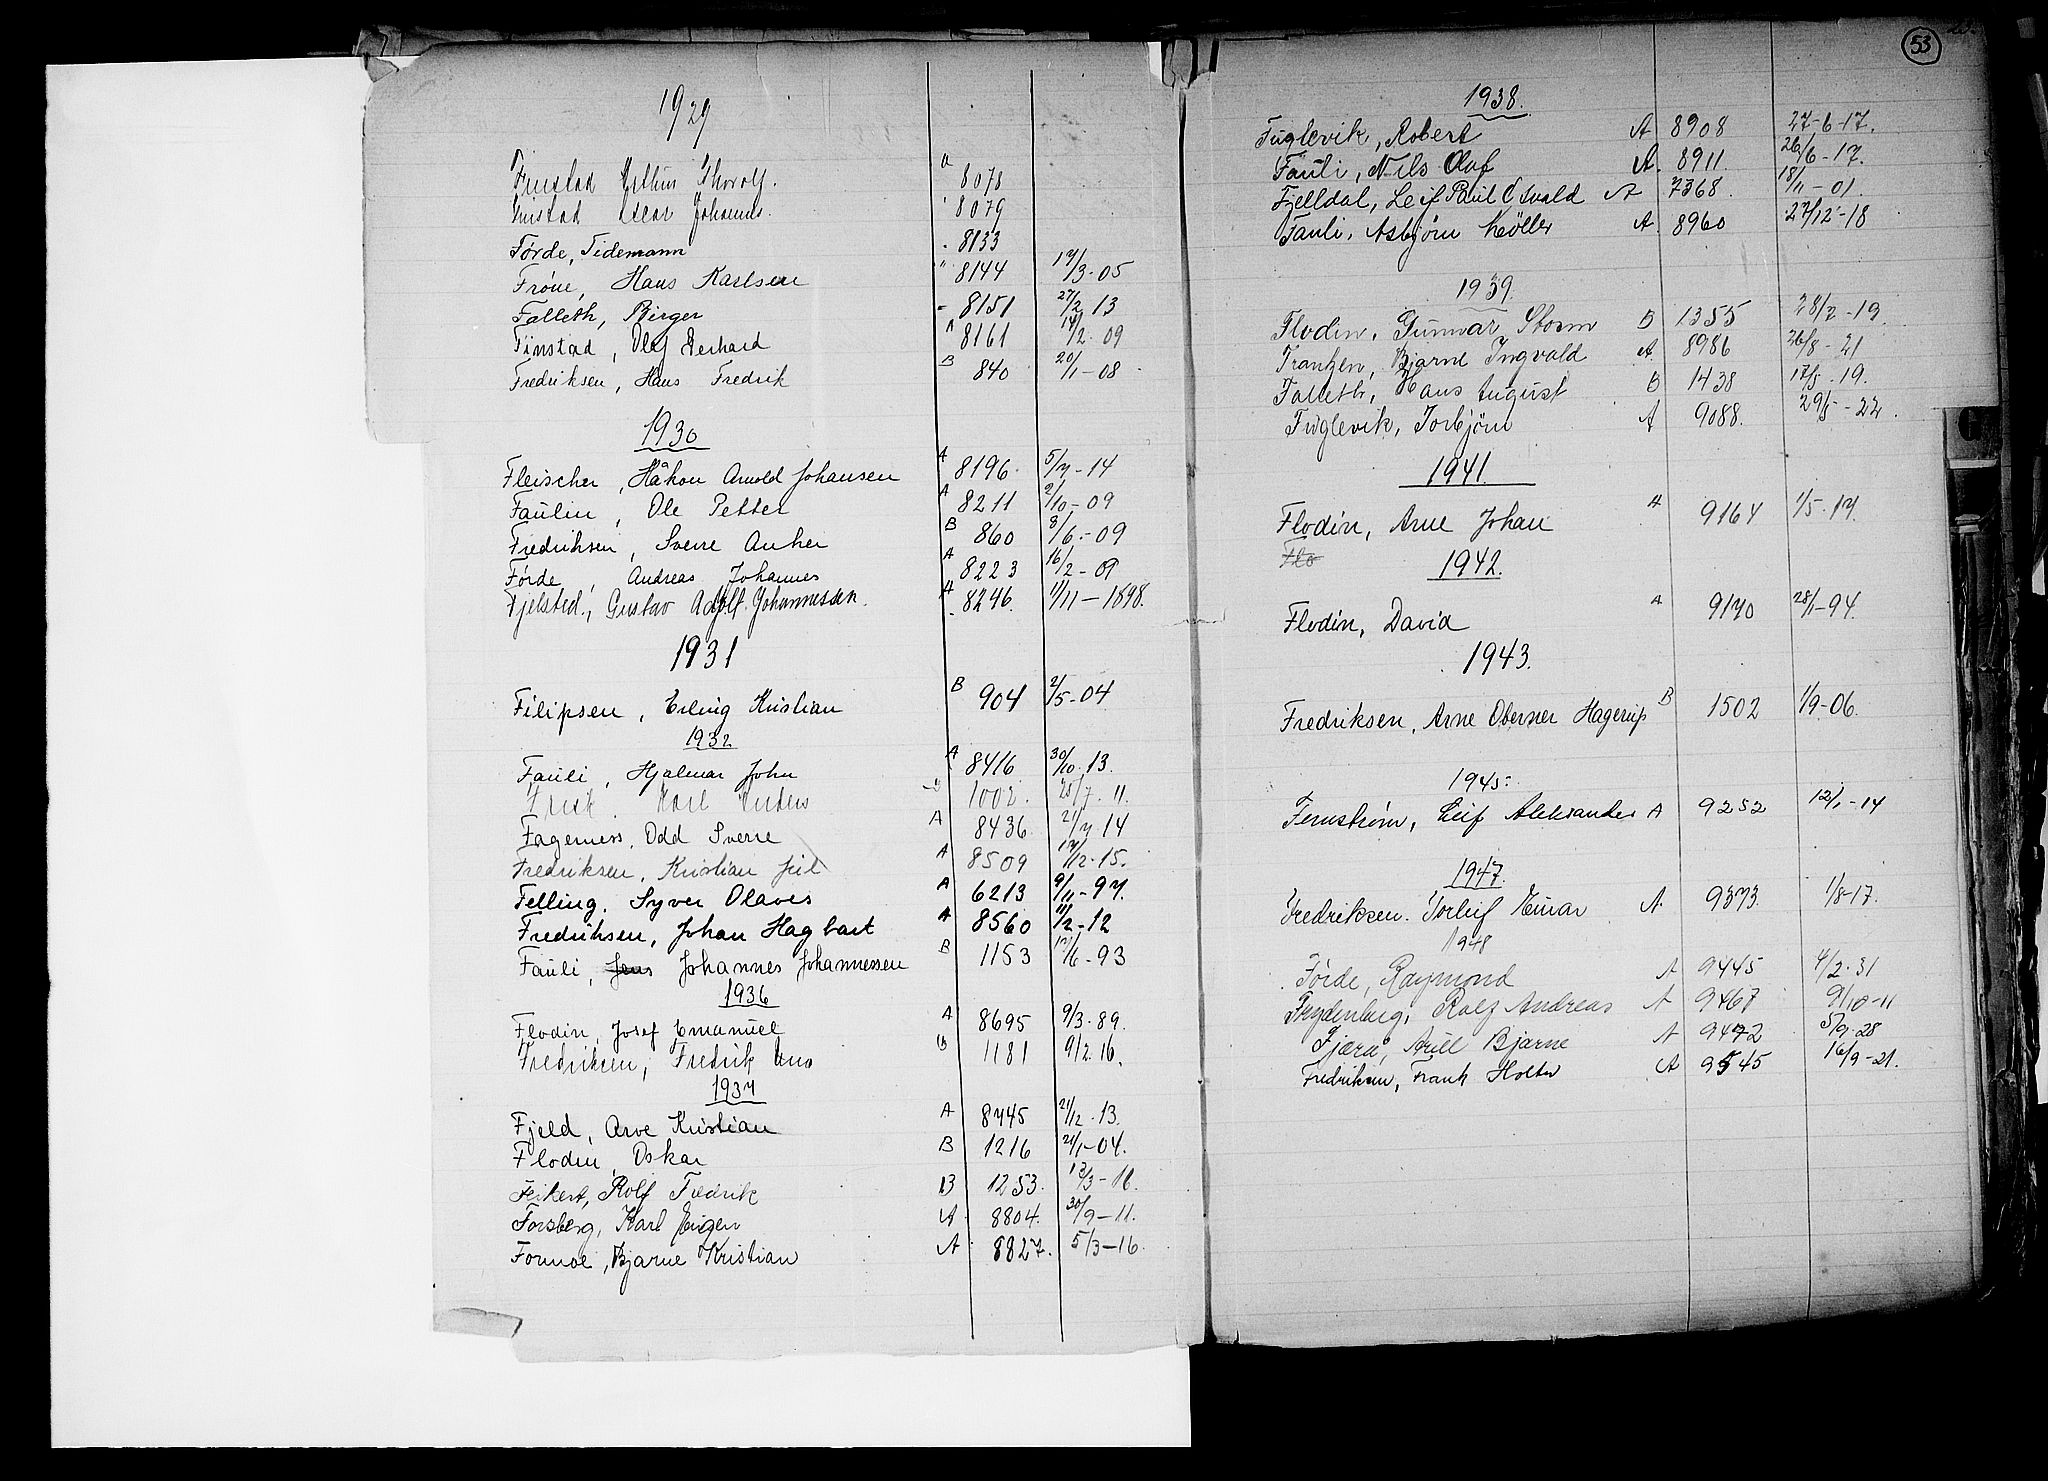 1929
Finstad Arthur Thorolf. A 8078
Finstad Johannes. " 8079
Førde, Tidemann " 8133
Frøne, Hans Karlsen " 8144 17/3-05
Falleth, Birger - 8151 27/2 13
Finstad, Olaf Gerhard A 8161 14/2-09
Fredriksen, Hans Fredrik B 840 20/1-08
1930
Fleischer, Håkon Arnold Johansen A 8196 5/7-14
Faulin, Ole Petter A 8211 2/10-09
Fredriksen, Sverre Anker B 860 8/6-09
Førde, Andreas Johannes A 8223 16/2-09
Fjelsted, Gustav Adolf Johannessen. A 8246. 1/11-1898.
1931
Filipsen, Erling Kristian B 904 2/5-04
1932
Fauli, Hjalmar John A 8416 30/10.13.
Karl Anders 1002. 25/7.11.
Fagerness, Odd Sverre A 8436 21/7 14
Fredriksen, Kristian Juil A 8509 17/12-15.
Felling, Syver Olaves A 6213 9/11-97.
Fredriksen, Johan Hagbart A 8560 11/2-12
Fauli, Jens Johannes Johannessen B 1153 12/6-93
1936
Flodin, Josef Emanuel A 8695 9/3-89.
Fredriksen, Fredrik B 1181 9/2.16.
1937
Fjeld, Arve Kristian A 8745 21/12.13.
Flodin, Oskar B 1216 21/1-04.
Feikert, Rolf Fredrik B 1253. 13/3-16.
Forsberg, Karl Eugen A 8804. 30/9-11.
Formoe, Bjarne Kristian A 8827. 5/3-16.
53
1938.
Fuglevik, Robert A 8908 27-6-17.
Fauli, Nils Olaf A. 8911. 26/6-17.
Fjelldal, Leif Paul Osvald A 7368. 18/11-01.
Fauli, Asbjørn Møller A. 8960 27/12-18
1939.
Flodin, Gunnar Storm B 1355 28/2-19.
Frantzen, Bjarne Ingvald A. 8986 26/8-21
Falleth, Hans August B 1438 17/5-19.
Fuglevik, Torbjørn A 9088. 29/5-22.
1941.
Flodin, Arne Johan A 9164 1/5-17.
Flo
1942.
Flodin, David A 9170 28/1-94.
1943.
Fredriksen, Arne Oberner Hagerup B 1502 1/9-06.
1945.
Fernstrøm, Leif Aleksander A 9252 12/1-14
1947.
Fredriksen. Torleif Einar A. 9373. 1/8-17.
1948
Førde, Raymond A 9445 4/2.31
Frydenberg, Rolf Andreas A 9467 9/10-11
Fjæra, Arill Bjarne A 9472 5/9.28
Fredriksen, Frank Holter A 9545 16/9-21.